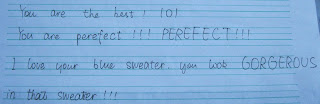 You are the best! lol
You are perefect !!! PEREFECT!!!
I love your blue sweater, you look GORGEROUS
in that sweater !!!